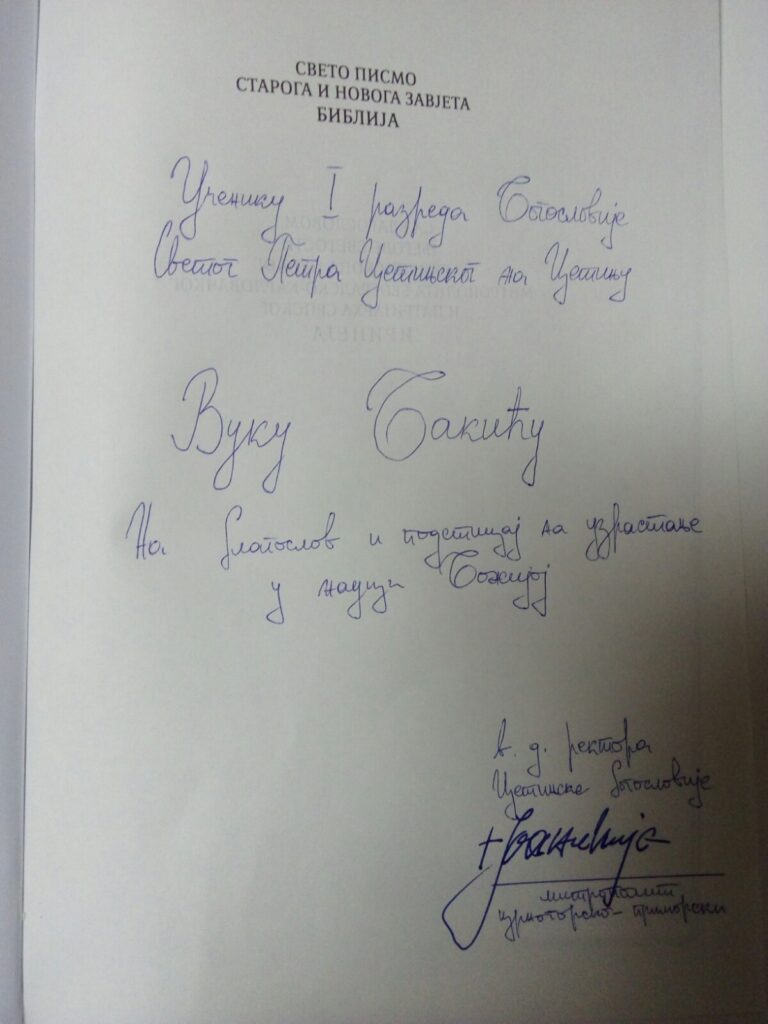 СВЕТО ПИСМО
СТАРОГА И НОВОГА ЗАВЈЕТА
БИБЛИЈА
Ученику I разреда Богословије
Светог Петра Цетињског на Цетињу
Вуку Бакићу
На благослов и подстицај на узрастање
у науци Божијој
в. д. ректора
Цетињске богословије
+ Јоаникије
митрополит
црногорско-приморски